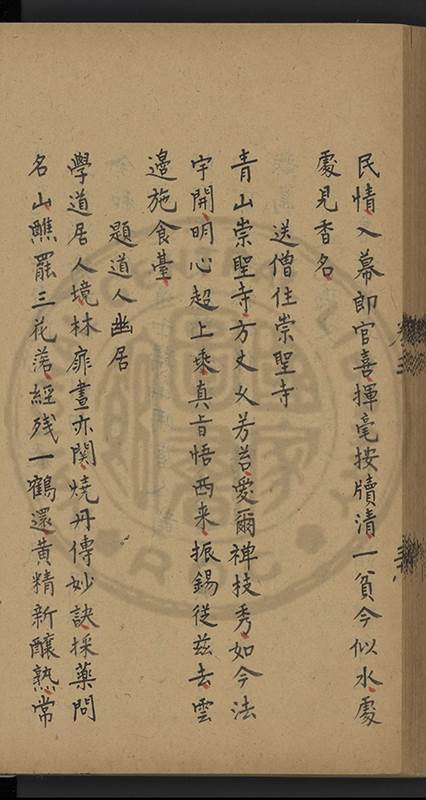 民情入幕郎官喜揮毫按牘清一貧今似水處
處見香名
送僧住崇聖寺
青山崇聖寺方丈久芳苔愛爾禅枝秀如今法
宇開明心超上乘真旨悟西来振錫從茲去雲
邊施食臺
題道人幽居
學道居人境林扉晝亦関燒丹傳妙訣採藥問
名山醮罷三花落經残一鶴還黄精新釀熟常